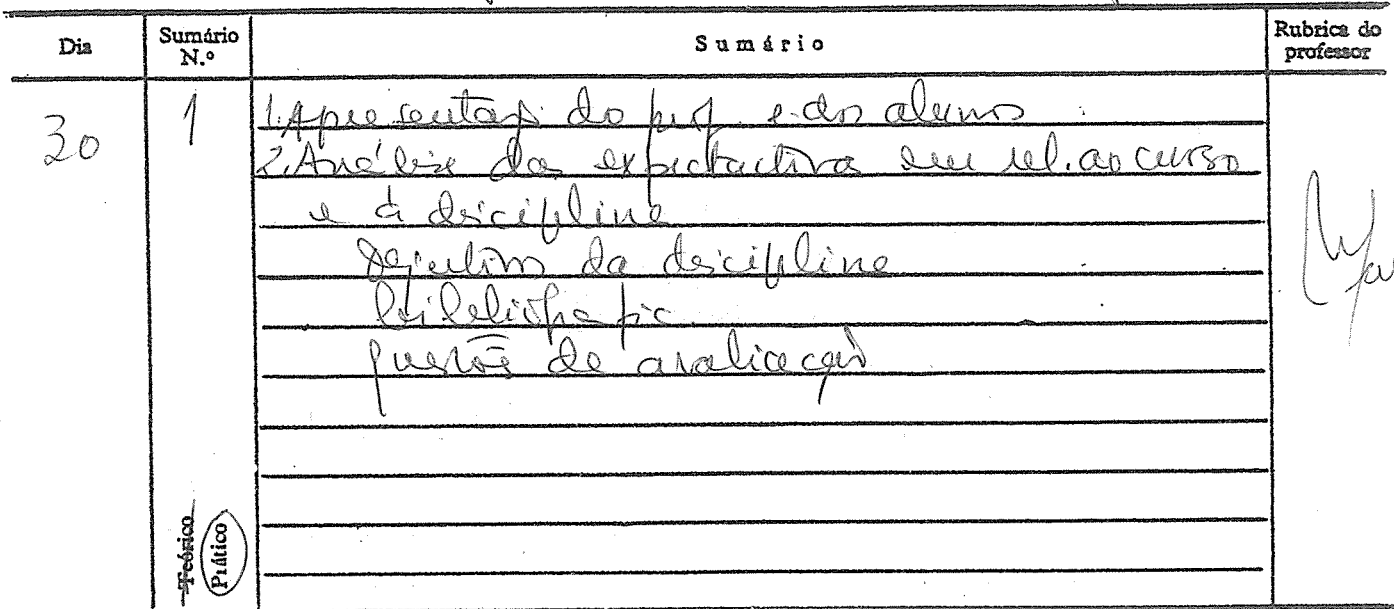 Dia Sumário N.º Sumário Rubrica do professor
30 1 1. Apresentaç. do prof. e dos alunos
2. Análise das expectativas em rel. ao curso
e à disciplina
Objectivos da disciplina
bibliografia
questões de avaliação
Teórico
Prático